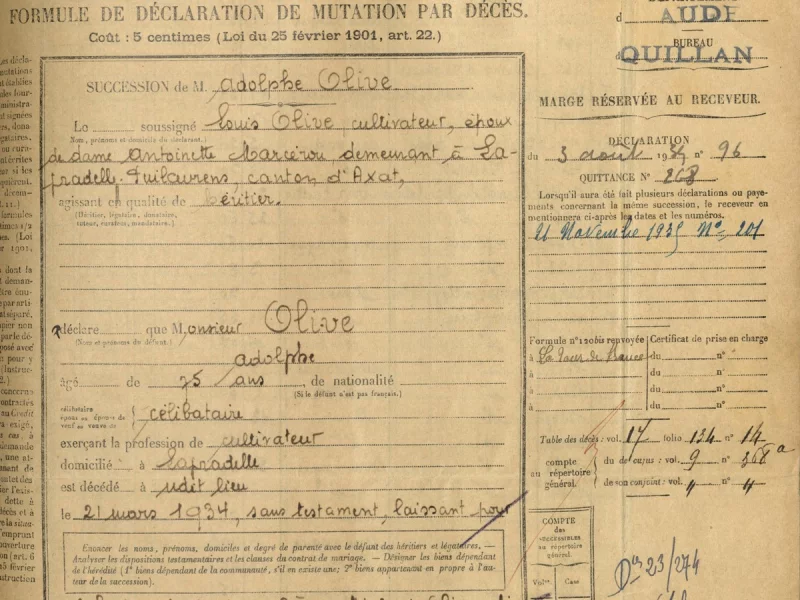 FORMULE DE DÉCLARATION DE MUTATION PAR DÉCÈS.
Coût : 5 centimes (Loi du 25 février 1901, art. 22.)
SUCCESSION de M. Adolphe Olive
Le soussigné Louis Olive, cultivateur, époux
Nom, prénoms et domicile du déclarant.
de dame Antoinette Marcerou, demeurant à La-
pradelle-Puilaurens, canton d'Axat,
agissant en qualité de héritier.
(Héritier, légataire, donataire,
tuteur, curateur, mandataire.)
déclare que Monsieur Olive
(Nom et prénoms du défunt.)
Adolphe
âgé de 75 ans, de nationalité
(Si le défunt n'est pas français.)
célibataire
époux ou épouse de
veuf ou veuve de
célibataire
exerçant la profession de cultivateur
domicilié à Lapradelle
est décédé à udit lieu
le 21 mars 1934, sans testament, laissant pour
Enoncer les noms, prénoms, domiciles et degré de parenté avec le défunt des héritiers et légataires. —
Analyser les dispositions testamentaires et les clauses du contrat de mariage. — Désigner les biens dépendant
de l'hérédité (1° biens dépendant de la communauté, s'il en existe une; 2° biens appartenant en propre à l'au-
teur de la succession).
d AUDE
BUREAU
d QUILLAN
MARGE RÉSERVÉE AU RECEVEUR.
DÉCLARATION
du 3 août 1934 n° 96
QUITTANCE N° 268
Lorsqu'il aura été fait plusieurs déclarations ou paye-
ments concernant la même succession, le receveur en
mentionnera ci-après les dates et les numéros.
21 Novembre 1935 N° 201
Formule n° 120 bis renvoyée
à La Tour de France
à
à
à
Certificat de prise en charge
du n°
du n°
du n°
du n°
Table des décès : vol. 17 folio 134 n° 14
compte
au répertoire
général.
du de cujus : vol. 9 n° 368 a
de son conjoint : vol. " n° "
COMPTE
des
successibles
au répertoire
général.
Vol. Case
23/274